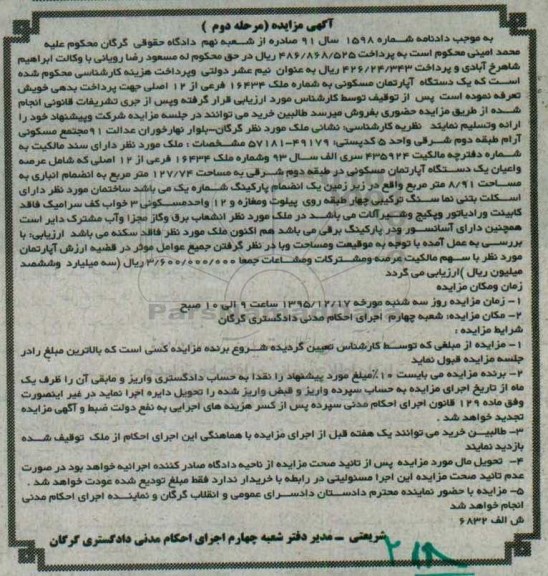 آگهی مزایده (مرحله دوم )
به موجب دادنامه شماره ۱۵۹۸ سال ۹۱ صادره از شعبه نهم دادگاه حقوقی گرگان محکوم علیه
محمد امینی محکوم است به پرداخت ۴۸۶/۸۶۸/۵۲۵ ریال در حق محکوم له مسعود رضا رویانی با وکالت ابراهیم
شاهرخ آبادی و پرداخت ۴۲۶/۲۴/۳۴۳ ریال به عنوان نیم عشر دولتی وپرداخت هزینه کارشناسی محکوم شده
است که یک دستگاه آپارتمان مسکونی به شماره ملک ۱۶۴۳۴ فرعی از ۱۲ اصلی جهت پرداخت بدهی خویش
تعرفه نموده است پس از توقیف توسط کارشناس مورد ارزیابی قرار گرفته وپس از جری تشریفات قانونی انجام
شده از طریق مزایده حضوری بفروش میرسد طالبین خرید می توانند در جلسه مزایده شرکت وپیشنهاد خود را
ارائه وتسلیم نمایند نظریه کارشناسی: نشانی ملک مورد نظر گرگان-بلوار نهارخوران عدالت ۹۱مجتمع مسکونی
آرام طبقه دوم شرقی واحد ۵ کدپستی: ۴۹۱۷۹-۵۷۱۸۱ مشخصات : ملک مورد نظر دارای سند مالکیت به
شماره دفترچه مالکیت ۴۳۵۹۲۴ سری الف سال ۹۳ وشماره ملک ۱۶۴۳۴ فرعی از ۱۲ اصلی که شامل عرصه
واعیان یک دستگاه آپارتمان مسکونی در طبقه دوم شرقی به مساحت ۱۲۷/۷۴ متر مربع به انضمام انباری به
مساحت ۸/۹۱ متر مربع واقع در زیر زمین یک انضمام پارکینگ شماره یک می باشد ساختمان مورد نظر دارای
اسکلت بتنی نما سنگ ترکیبی چهار طبقه روی پیلوت ومغازه و ۱۲ واحدمسکونی ۳ خواب کف سرامیک فاقد
کابینت ورادیاتور وپکیج وشیرآلات می باشد در ملک مورد نظر انشعاب برق وگاز مجزا وآب مشترک دایر است
همچنین دارای آسانسور ودر پارکینگ برقی می باشد هم اکنون ملک مورد نظر فاقد سکنه می باشد ارزیابی: با
بررسی به عمل آمده با توجه به موقعیت ومساحت وبا در نظر گرفتن جمیع عوامل موثر در قضیه ارزش آپارتمان
مورد نظر با سهم مالکیت عرصه ومشترکات ومشاعات جمعا ۳/۶۰۰/۰۰۰/۰۰۰ ریال (سه میلیارد وششصد
میلیون ریال )ارزیابی می گردد
زمان ومکان مزایده
۱- زمان مزایده روز سه شنبه مورخه ۱۳۹۵/۱۲/۱۷ ساعت ۹ الی ۱۰ صبح
۲- مکان مزایده: شعبه چهارم اجرای احکام مدنی دادگستری گرگان
شرایط مزایده :
۱- مزایده از مبلغی که توسط کارشناس تعیین گردیده شروع برنده مزایده کسی است که بالاترین مبلغ رادر
جلسه مزایده قبول نماید
۲- برنده مزایده می بایست ۱۰٪مبلغ مورد پیشنهاد را نقدا به حساب دادگستری واریز و مابقی آن را ظرف یک
ماه از تاریخ اجرای مزایده به حساب سپرده واریز و قبض واریز شده را تحویل دایره اجرا نماید در غیر اینصورت
وفق ماده ۱۲۹ قانون اجرای احکام مدنی سپرده پس از کسر هزینه های اجرایی به نفع دولت ضبط و آگهی مزایده
تجدید خواهد شد .
۳- طالبین خرید می توانند یک هفته قبل از اجرای مزایده با هماهنگی این اجرای احکام از ملک توقیف شده
بازدید نمایند
۴- تحویل مال مورد مزایده پس از تائید صحت مزایده از ناحیه دادگاه صادر کننده اجرائیه خواهد بود در صورت
عدم تائید صحت مزایده این اجرا مسئولیتی در رابطه با خریدار ندارد فقط مبلغ تودیع شده عودت خواهد شد .
۵- مزایده با حضور نماینده محترم دادستان دادسرای عمومی و انقلاب گرگان و نماینده اجرای احکام مدنی
انجام خواهد شد
ش الف ۶۸۳۲
شریعتی – مدیر دفتر شعبه چهارم اجرای احکام مدنی دادگستری گرگان